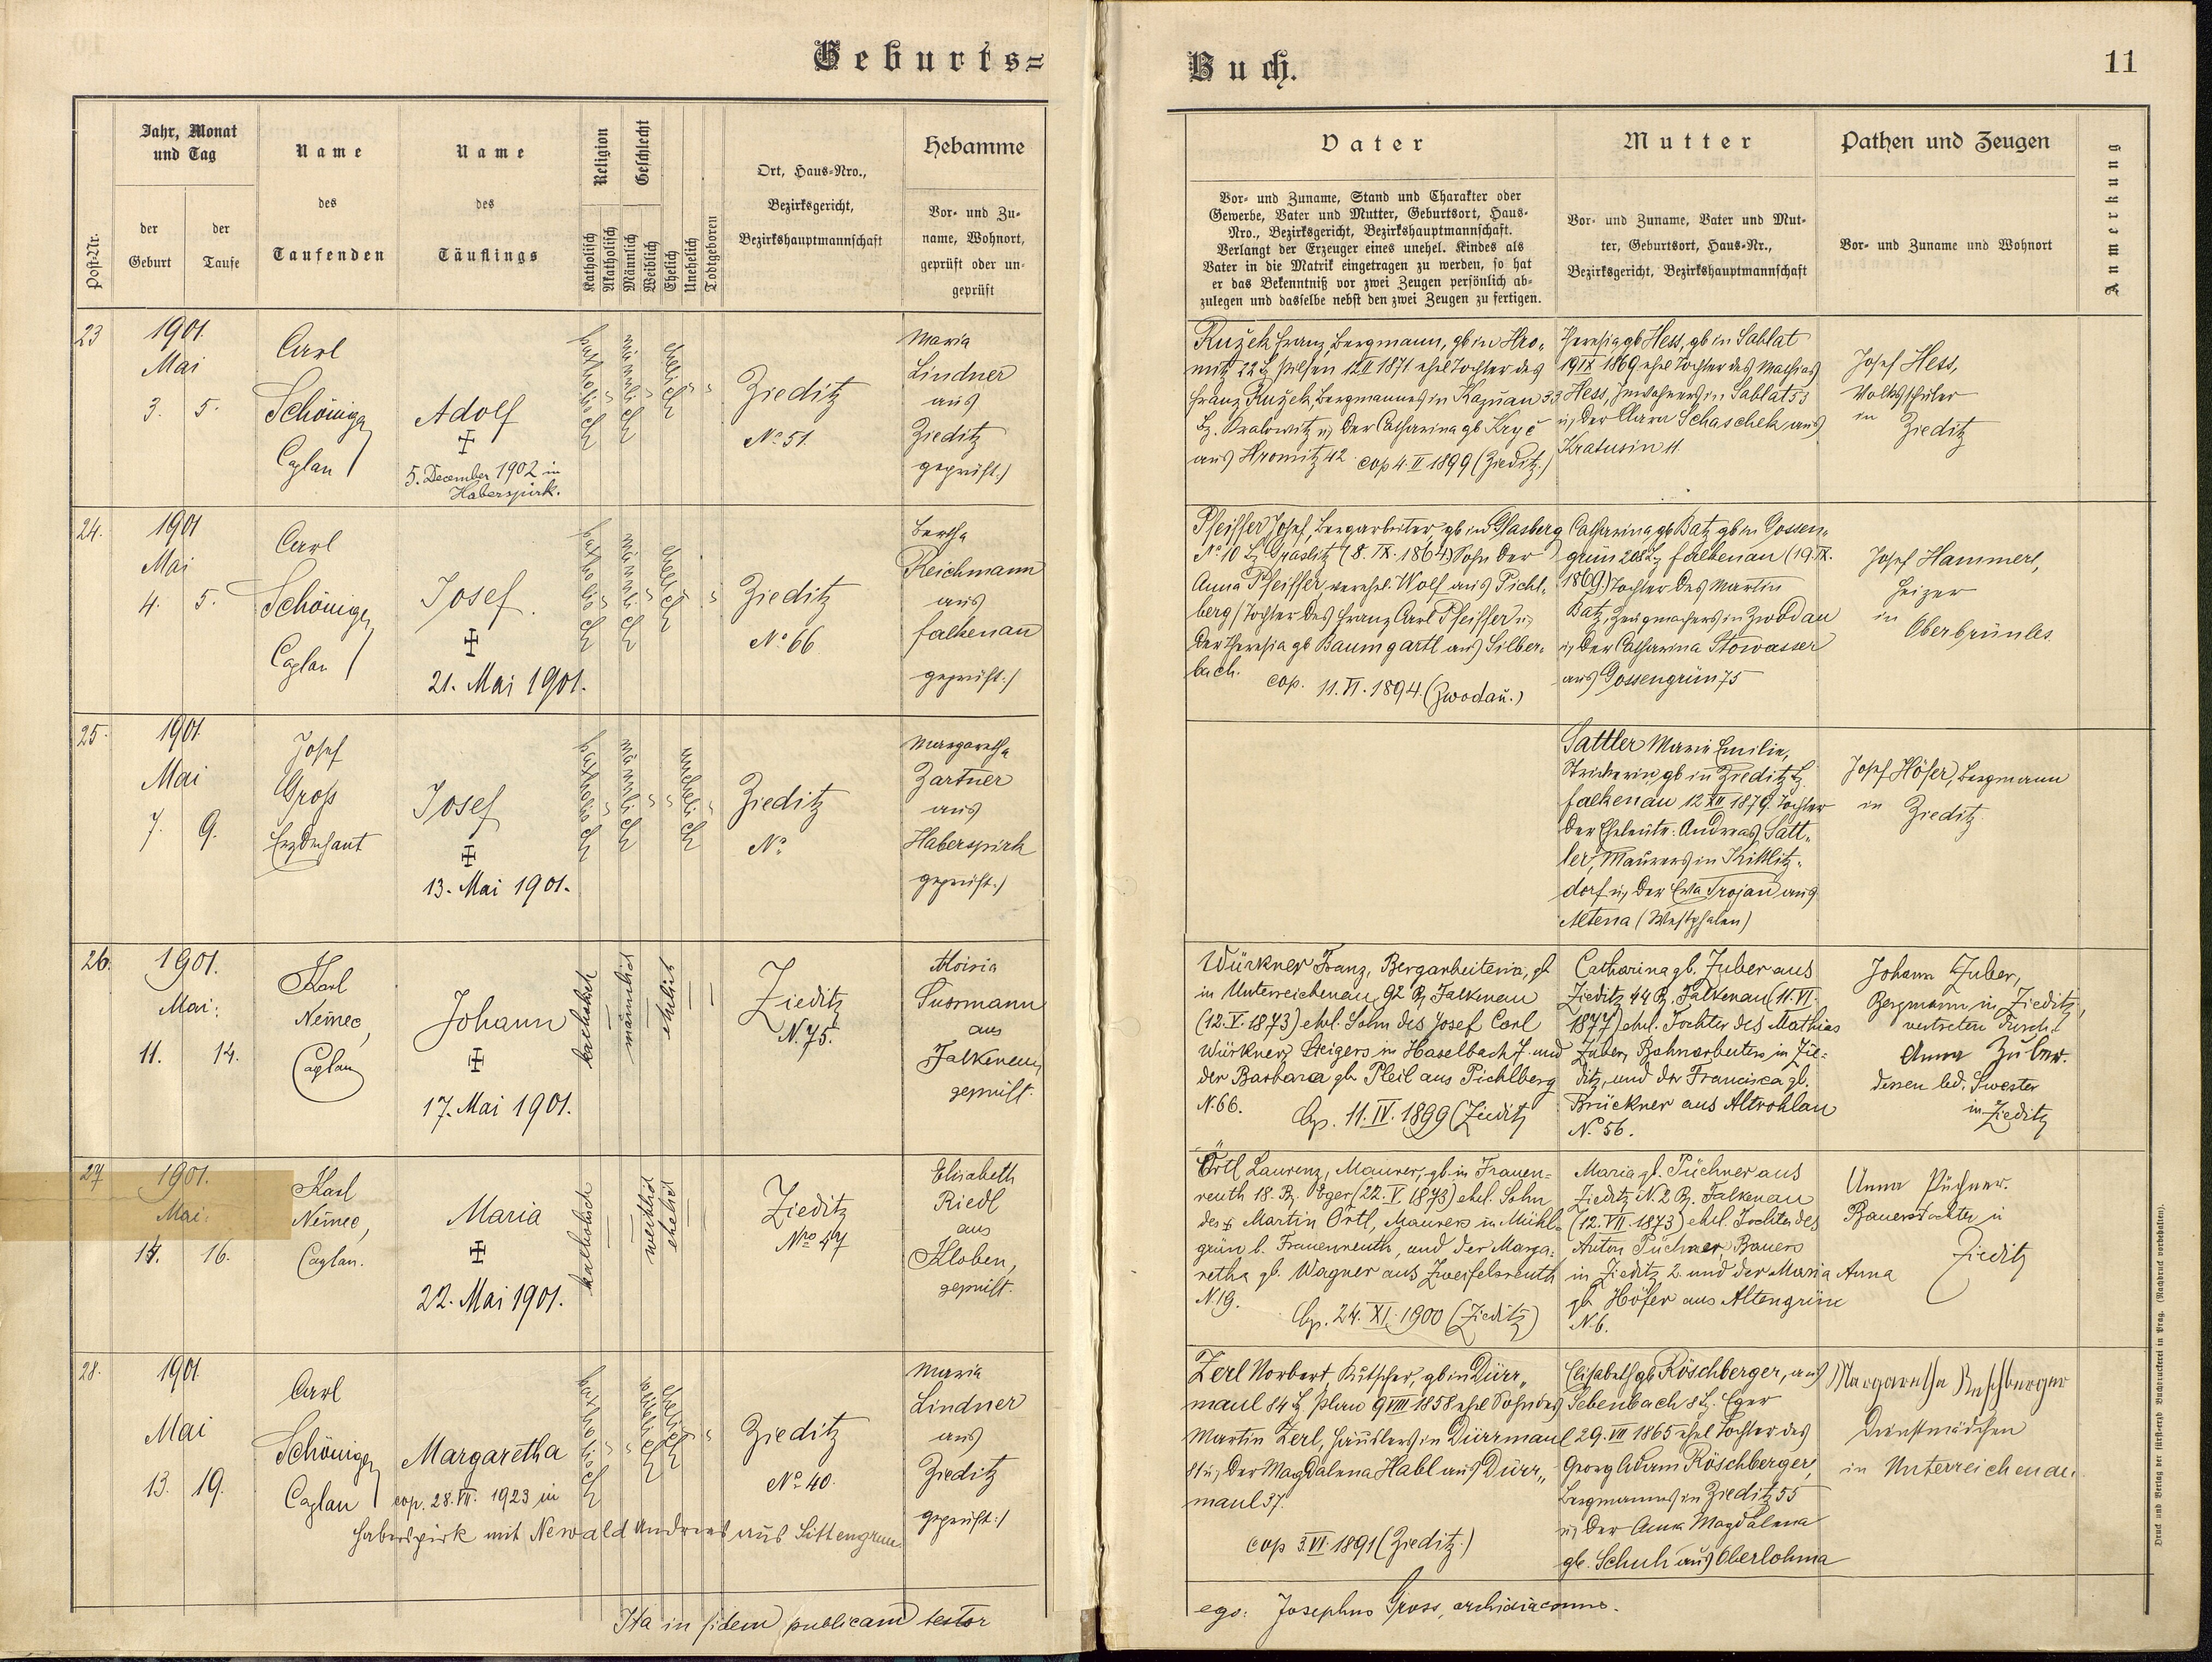 Geburts=
Buch.
11
Post-Nr.
Jahr, Monat
und Tag
der
Geburt
der
Taufe
Name
des
Taufenden
Name
des
Täuflings
Religion
Katholisch
Akatholisch
Geschlecht
Männlich
Weiblich
Ehelich
Unehelich
Todtgeboren
Ort, Haus-Nro.,
Bezirksgericht,
Bezirkshauptmannschaft
Hebamme
Vor- und Zu-
name, Wohnort,
geprüft oder un-
geprüft
Vater
Vor- und Zuname, Stand und Charakter oder
Gewerbe, Vater und Mutter, Geburtsort, Haus-
Nro., Bezirksgericht, Bezirkshauptmannschaft.
Verlangt der Erzeuger eines unehel. Kindes als
Vater in die Matrik eingetragen zu werden, so hat
er das Bekenntniß vor zwei Zeugen persönlich ab-
zulegen und dasselbe nebst den zwei Zeugen zu fertigen.
Mutter
Vor- und Zuname, Vater und Mut-
ter, Geburtsort, Haus-Nr.,
Bezirksgericht, Bezirkshauptmannschaft
Pathen und Zeugen
Vor- und Zuname und Wohnort
Anmerkung
23
1901.
Mai
3. 5.
Carl
Schöniger
Caplan
Adolf
5. December 1902 in
Haberspirk.
katholisch
männlich
ehelich
Zieditz
No 51.
Maria
Lindner
aus
Zieditz
geprüft.)
Ružek Franz, Bergmann, gb in Hro-
mitz 22 Bz Pilsen 12.II 1871 ehel Tochter des
Franz Ružek, Bergmannes in Kaznau 33
Bz. Kralowitz u, der Catharina gb Kryč
aus Hromitz 42 cop 4.II 1899 (Zieditz.)
Theresia gb Hess, gb in Sablat
19 IX 1869 ehel Tochter des Mathias
Hess, Inwohners in Sablat 53
u, der Clara Schaschek aus
Kratusin 11
Josef Hess,
Volksschüler
in Zieditz
24.
1901
Mai
4. 5.
Carl
Schöniger
Caplan
Josef.
21. Mai 1901.
katholisch
männlich
ehelich
Zieditz
No 66
Bertha
Reichmann
aus
Falkenau
geprüft.)
Pfeiffer Josef, Bergarbeiter, gb in Glasberg
No 10 Bz Graslitz (8. IX. 1864) Sohn der
Anna Pfeiffer, verehel. Wolf aus Pichl-
berg (Tochter des Franz Carl Pfeiffer u,
der Theresia gb Baumgartl aus Silber-
bach. cop. 11. VI. 1894. (Zwodau.)
Catharina gb Batz gb in Gossen-
grün 208 Bz Falkenau (19. IX.
1869) Tochter des Martin
Batz, Zeugmachers in Zwodau
u, der Catharina Stowasser
aus Gossengrün 75
Josef Hammerl,
Heizer
in Oberbrünles.
25.
1901
Mai
7. 9.
Josef
Gross
Erzdechant
Josef
13. Mai 1901.
katholisch
männlich
unehelich
Zieditz
No
Margaretha
Zartner
aus
Haberspirk
geprüft.)
Sattler Marie Emilie,
Strickerin, gb in Zieditz Bz
Falkenau 12 XII 1879. Tochter
der Eheleute: Andreas Satt-
ler, Maurers in Kittlitz-
dorf u, der Eva Trojan aus
Altena (Westphalen)
Josef Höfer, Bergmann
in Zieditz.
26.
1901.
Mai:
11. 14.
Karl
Němec,
Caplan
Johann
17. Mai 1901.
katholisch
männlich
ehelich
Zieditz
N. 75.
Aloisia
Tussmann
aus
Falkenau,
geprüft.
Würkner Franz, Bergarbeiter, gb
in Unterreichenau 92 Bz Falkenau
(12. V. 1873) ehel. Sohn des Josef Carl
Würkner, Steigers in Haselbach 7. und
der Barbara gb Pleil aus Pichlberg
N. 66. Cop. 11. IV. 1899 (Zieditz
Catharina gb. Zuber aus
Zieditz 44 Bz. Falkenau (11. VI.
1877) ehel. Tochter des Mathias
Zuber, Bahnarbeiters in Zie-
ditz, und der Francisca gb.
Brückner aus Altrohlau
N. 56.
Johann Zuber,
Bergmann in Zieditz,
vertreten durch:
Anna Zuber.
dessen led. Swester
in Zieditz
27
1901.
Mai:
14. 16.
Karl
Němec,
Caplan.
Maria
22. Mai 1901.
katholisch
weiblich
ehelich
Zieditz
Nro 47
Elisabeth
Riedl
aus
Kloben,
geprüft.
Örtl Laurenz, Maurer, gb. in Frauen-
reuth 18. Bz. Eger (22. V. 1873) ehel. Sohn
des Martin Örtl, Maurers in Mühl-
grün b. Frauenreuth, und der Marga-
retha gb. Wagner aus Zweifelsreuth
N. 19. Cop. 24. XI. 1900 (Zieditz)
Maria gb. Püchner aus
Zieditz N. 2 Bz. Falkenau
(12. VII. 1873) ehel. Tochter des
Anton Püchner, Bauers
in Zieditz 2. und der Maria Anna
gb. Höfer aus Altengrün
N. 6.
Anna Püchner.
Bauerstochter in
Zieditz
28.
1901.
Mai
13. 19.
Carl
Schöniger
Caplan
Margaretha
cop. 28. VII. 1923 in
Haberspirk mit Newald Andreas aus Littengrün.
katholisch
weiblich
ehelich
Zieditz
No 40.
Maria
Lindner
aus
Zieditz
geprüft.)
Zerl Norbert, Kutscher, gb in Dürr-
maul 84 Bz Plan 9 VIII 1858 ehel Sohn des
Martin Zerl, Häuslers in Dürrmaul
81 u, der Magdalena Habl aus Dürr-
maul 37.
cop 3. VI. 1891 (Zieditz.)
Elisabeth gb Röschberger, aus
Sebenbach 8 Bz. Eger
29. VII 1865 ehel Tochter des
Georg Adam Röschberger,
Bergmannes in Zieditz 55
u, der Anna Magdalena
gb. Schuh aus Oberlohma
Margaretha Reschberger
Dienstmädchen
in Unterreichenau.
Ita in fidem publicam testor
ego: Josephus Gross, archidiaconus.
Druck und Verlag der fürsterzb. Buchdruckerei in Prag. (Nachdruck vorbehalten).